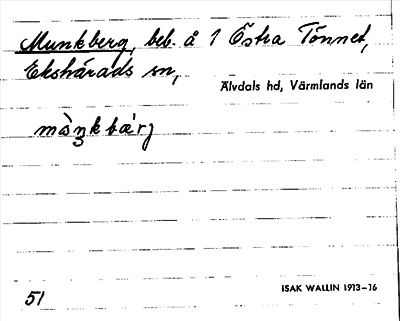 Munkberg, beb. å 1 Östra Tönnet,
Ekshärads sn,
Älvdals hd, Värmlands län
mòŋkbær̀j
51
ISAK WALLIN 1913-16